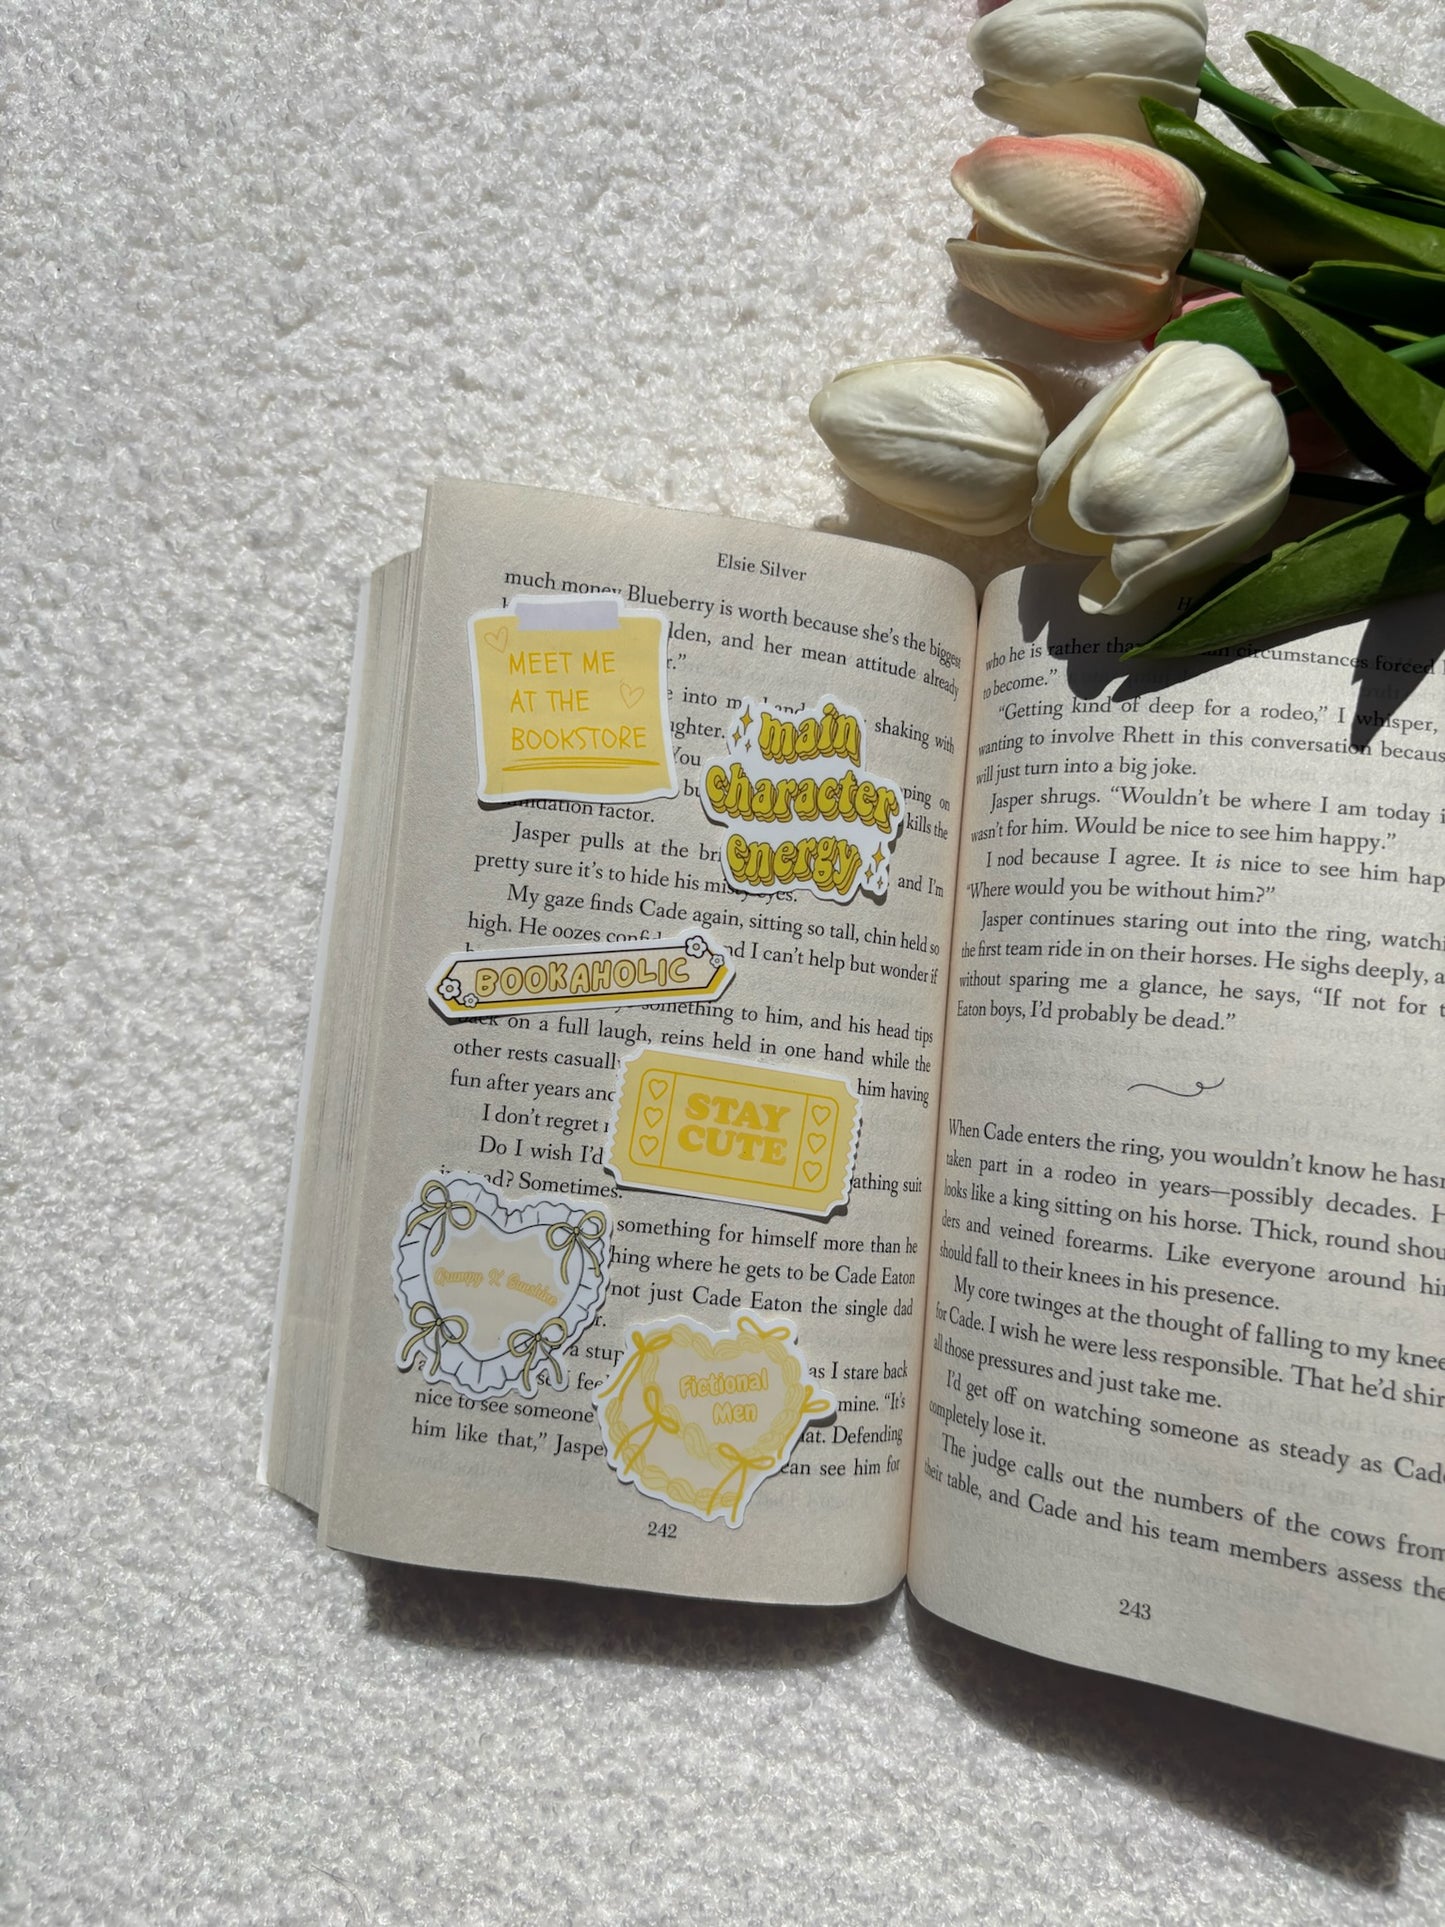 Elsie Silver
much money Blueberry is worth because she's the biggest
lden, and her mean attitude already
r."
MEET ME
AT THE
BOOKSTORE
e into my hand shaking with
ughter.
You
main
character
energy
ping on
bu
kills the
undation factor.
Jasper pulls at the bri
and I'm
pretty sure it's to hide his misty eyes.
My gaze finds Cade again, sitting so tall, chin held so
high. He oozes confid nd I can't help but wonder if
BOOKAHOLIC
something to him, and his head tips
back on a full laugh, reins held in one hand while the
other rests casually
him having
fun after years and
STAY
CUTE
I don't regret
Do I wish I'd
athing suit
instead? Sometimes.
something for himself more than he
hing where he gets to be Cade Eaton
not just Cade Eaton the single dad
r.
Grumpy X Sunshine
a stup
as I stare back
feel
mine. "It's
Fictional
Men
nice to see someone
hat. Defending
him like that," Jaspe
can see him for
242
who he is rather tha circumstances forced
to become."
"Getting kind of deep for a rodeo," I whisper,
wanting to involve Rhett in this conversation becaus
will just turn into a big joke.
Jasper shrugs. "Wouldn't be where I am today i
wasn't for him. Would be nice to see him happy."
I nod because I agree. It is nice to see him hap
"Where would you be without him?"
Jasper continues staring out into the ring, watchi
the first team ride in on their horses. He sighs deeply, a
without sparing me a glance, he says, "If not for t
Eaton boys, I'd probably be dead."
When Cade enters the ring, you wouldn't know he hasn
taken part in a rodeo in years—possibly decades. H
looks like a king sitting on his horse. Thick, round shou
ders and veined forearms. Like everyone around hi
should fall to their knees in his presence.
My core twinges at the thought of falling to my knee
for Cade. I wish he were less responsible. That he'd shir
all those pressures and just take me.
I'd get off on watching someone as steady as Cad
completely lose it.
The judge calls out the numbers of the cows from
their table, and Cade and his team members assess the
243